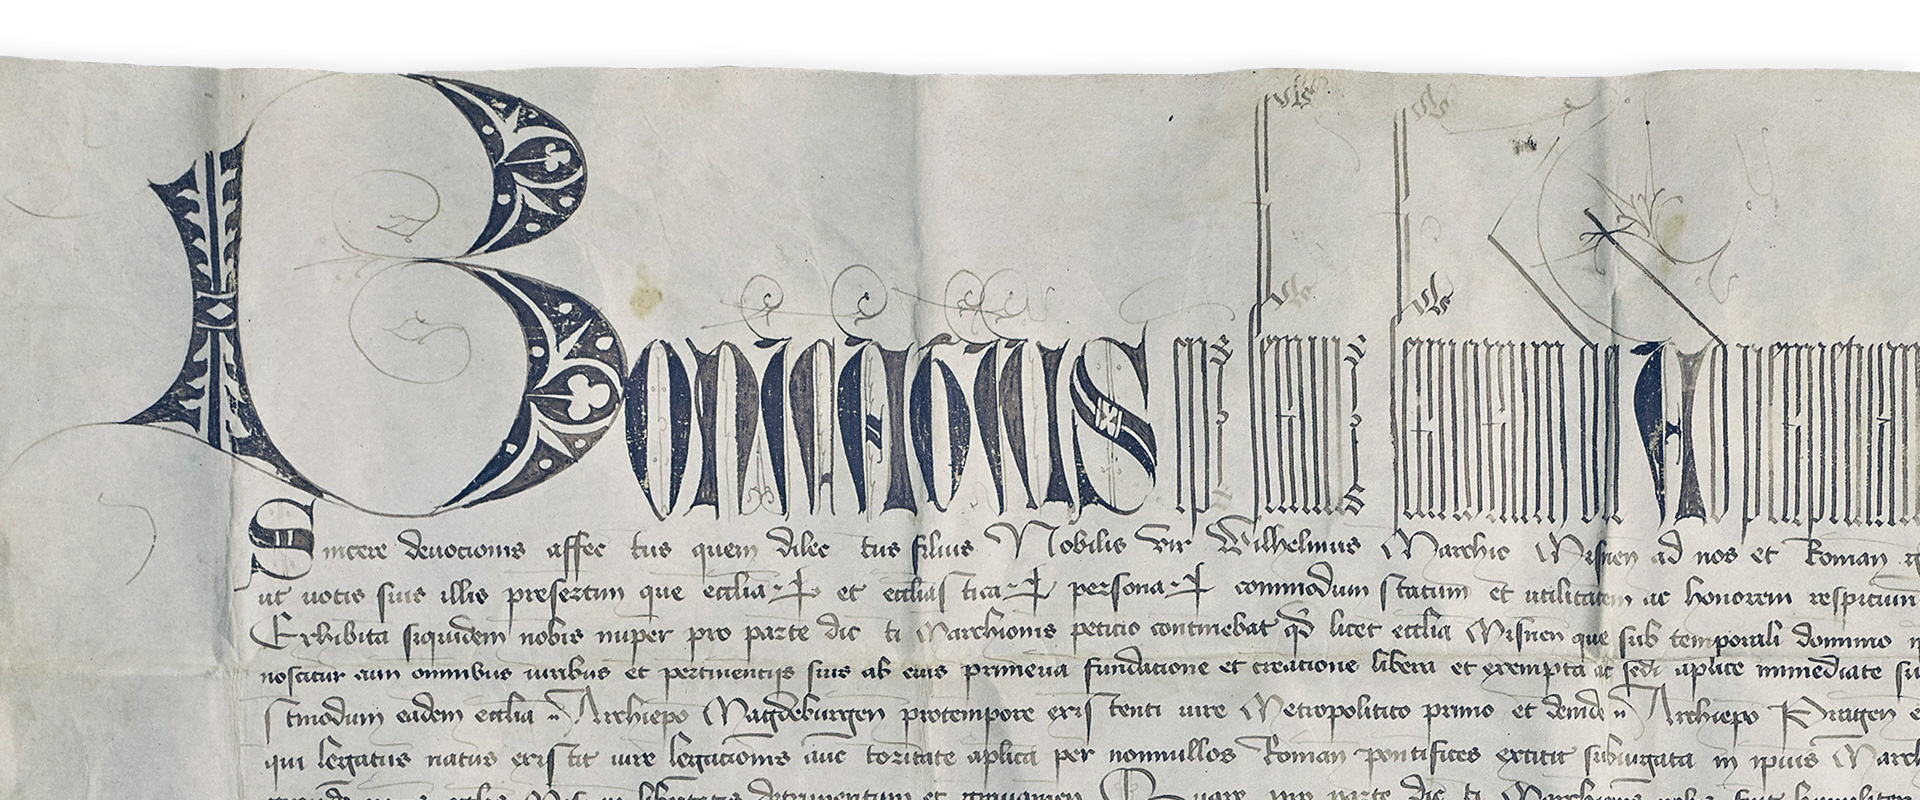 Bonifacius eps seruus seruorum dei Ad perpetuam
Sincere deuocionis affectus quem dilectus filius Nobilis vir Wilhelmus Marchio Misnen ad nos et Roman
ut uotis suis illis presertim que ecclia℞ et ecclasticar℞ persona℞ commodum statum et utilitatem ac honorem respiciunt
Exhibita siquidem nobis nuper pro parte dicti Marchionis peticio continebat qd licet ecclia Misnen que sub temporali dominio
noscitur cum omnibus iuribus et pertinentijs suis ab eius primeua fundacione et creacione libera et exempta ac sedi aplice immediate
stmodum eadem ecclia Archiepo Magdeburgen protempore existenti iure Metropolitico primo et deinde Archiepo Pragen
qui legatus natus existit iure legacionis auctoritate aplica per nonnullos Roman pontifices extitit subiugata in ipius
libertatis detrimentum et grauamen Quare pro parte dicti Marchionis